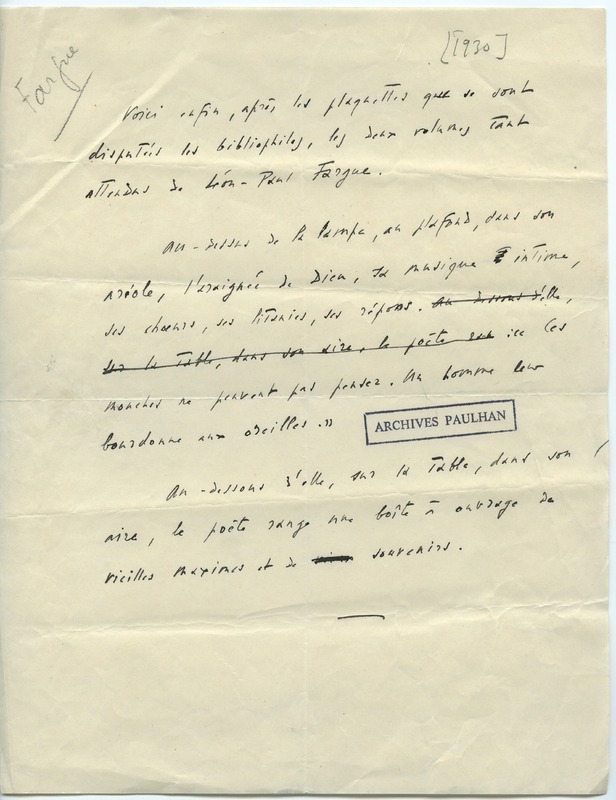 Fargue
[1930]
Voici enfin, après les plaquettes que se sont
disputées les bibliophiles, les deux volumes tant
attendus de Léon-Paul Fargue.
Au-dessus de la lampe, au plafond, dans son
aréole, l'araignée de Dieu, sa musique intime,
ses chœurs, ses litanies, ses répons. Au-dessous d'elle,
sur la table, dans son aire, le poète «Les
mouches ne peuvent pas penser. Un homme leur
bourdonne aux oreilles.»
ARCHIVES PAULHAN
Au-dessous d'elle, sur la table, dans son
aire, le poète range une boîte à ouvrage de
vieilles maximes et de souvenirs.